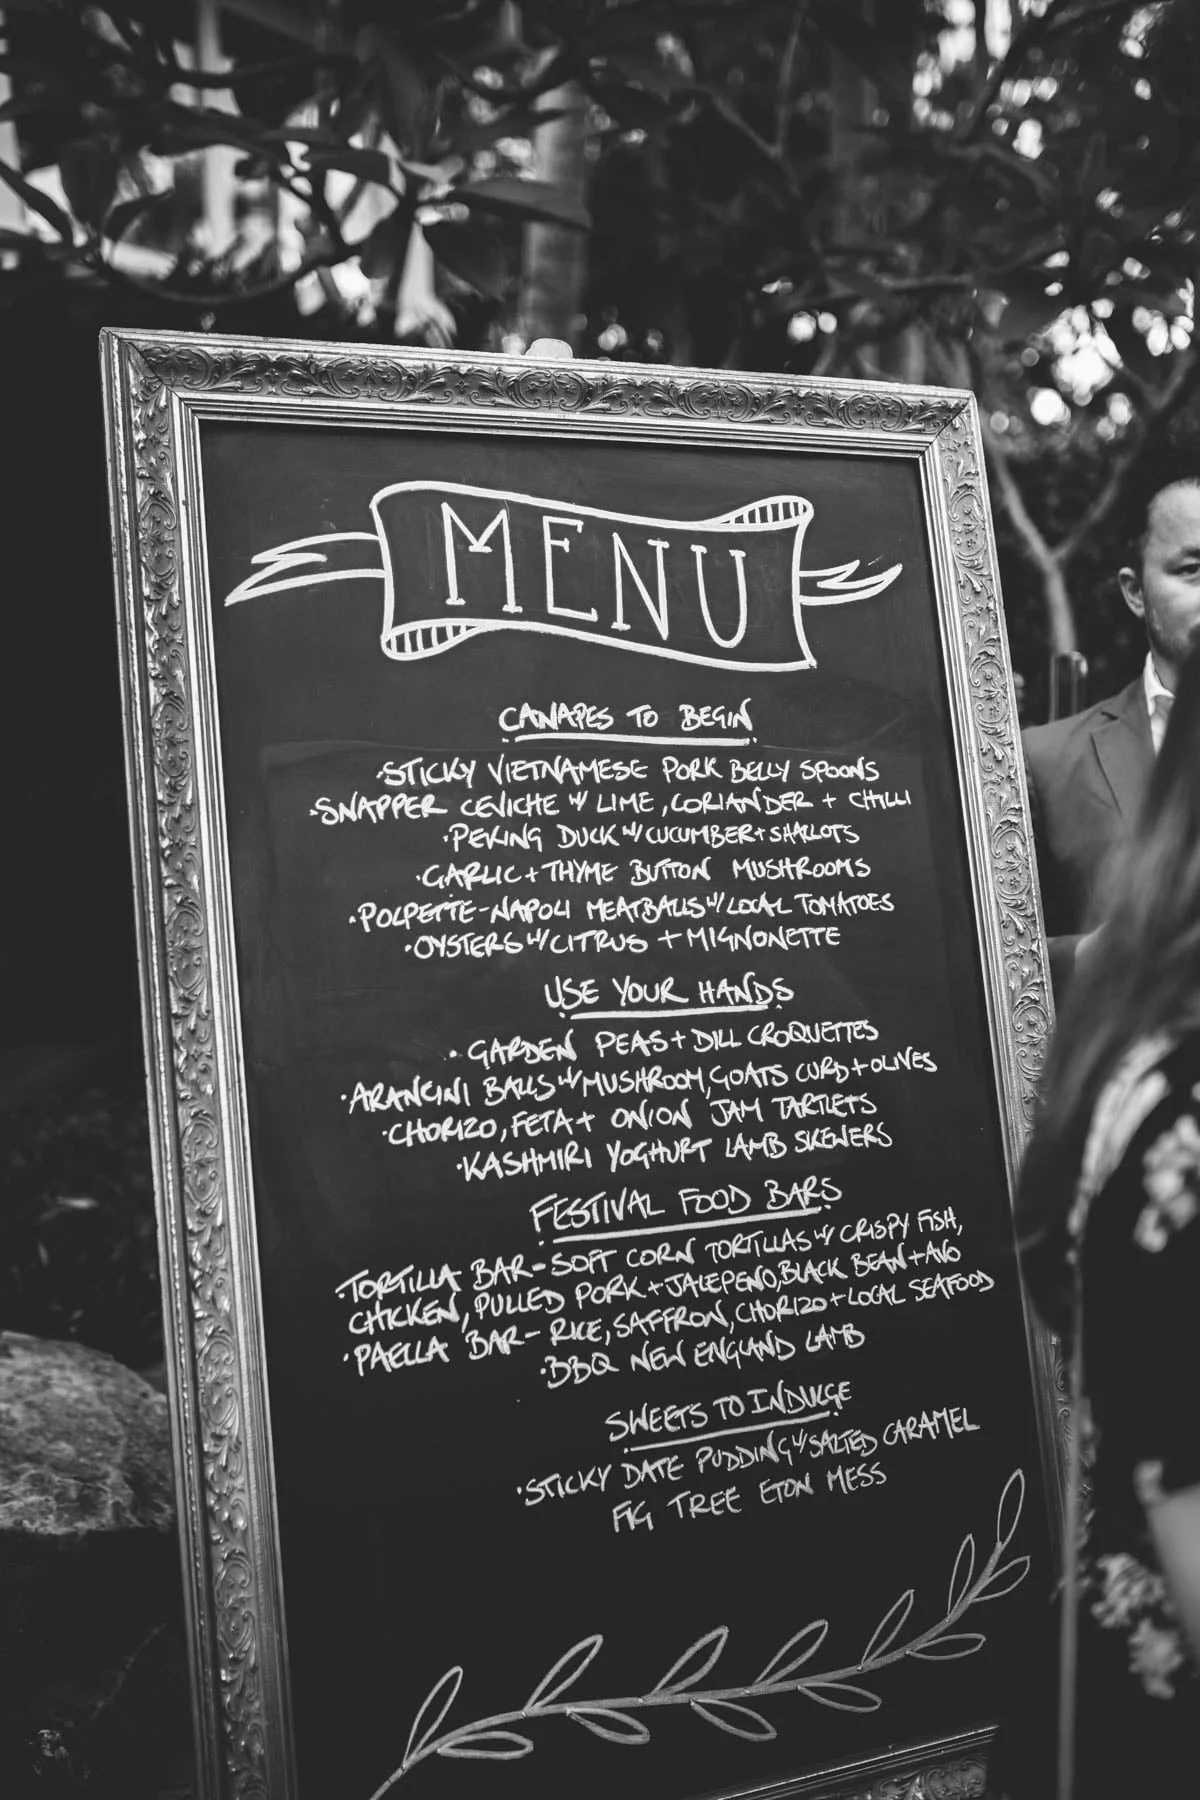 MENU
CANAPES TO BEGIN
·STICKY VIETNAMESE PORK BELLY SPOONS
·SNAPPER CEVICHE W/ LIME, CORIANDER + CHILLI
·PEKING DUCK W/ CUCUMBER + SHALLOTS
·GARLIC + THYME BUTTON MUSHROOMS
·POLPETTE-NAPOLI MEATBALLS W/ LOCAL TOMATOES
·OYSTERS W/ CITRUS + MIGNONETTE
USE YOUR HANDS
·GARDEN PEAS + DILL CROQUETTES
·ARANCINI BALLS W/ MUSHROOM, GOATS CURD + OLIVES
·CHORIZO, FETA + ONION JAM TARTLETS
·KASHMIRI YOGHURT LAMB SKEWERS
FESTIVAL FOOD BARS
·TORTILLA BAR - SOFT CORN TORTILLAS W/ CRISPY FISH,
CHICKEN, PULLED PORK + JALEPENO, BLACK BEAN + AVO
·PAELLA BAR - RICE, SAFFRON, CHORIZO + LOCAL SEAFOOD
·BBQ NEW ENGLAND LAMB
SWEETS TO INDULGE
·STICKY DATE PUDDING W/ SALTED CARAMEL
FIG TREE ETON MESS